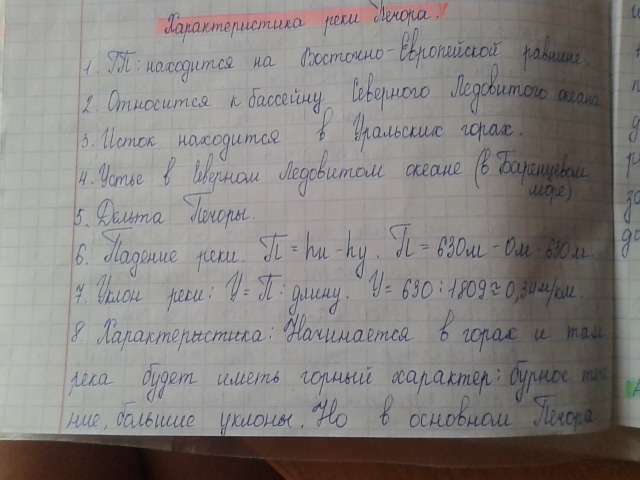 Характеристика реки Печора.
1. ГП: находится на Восточно-Европейской равнине.
2. Относится к бассейну Северного Ледовитого океана
3. Исток находится в Уральских горах.
4. Устье в Северном Ледовитом океане (в Баренцевом
море)
5. Дельта Печоры.
6. Падение реки. П = hи - hу. П = 630м - 0м - 630м.
7. Уклон реки: У = П : длину. У = 630 : 1809 ≈ 0,34м/км.
8 Характерыстика: Начинается в горах и там
река будет иметь горный характер: бурное тече
ние, большие уклоны. Но в основном Печора